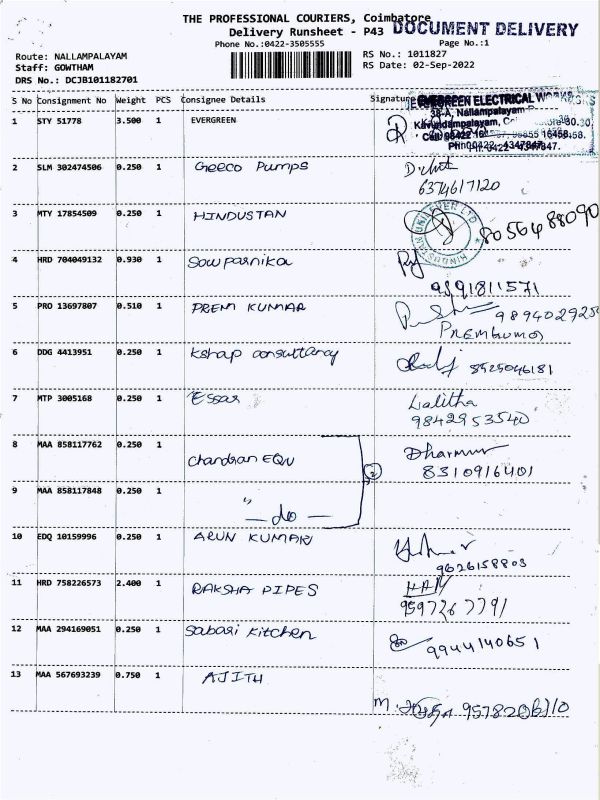 THE PROFESSIONAL COURIERS, Coimbatore
DOCUMENT DELIVERY
Delivery Runsheet - P43
Phone No.:0422-3505555
Page No.:1
Route: NALLAMPALAYAM
RS No.: 1011827
Staff: GOWTHAM
RS Date: 02-Sep-2022
DRS No.: DCJB101182701
S No Consignment No Weight PCS Consignee Details Signature
EVERGREEN ELECTRICAL WORKS
38-A, Nallampalayam
1 STY 51778 3.500 1 EVERGREEN
2 SLM 302474506 0.250 1 Geeco Pumps
6374617120
3 MTY 17854509 0.250 1 HINDUSTAN
HINDUSTAN UNILEVER LTD
8056488090
4 HRD 704049132 0.930 1 Sowparnika
9591811571
5 PRO 13697807 0.510 1 PREM KUMAR
Premkumar
6 DDG 4413951 0.250 1 Kshap consultancy
8525046181
7 MTP 3005168 0.250 1 Essar
Lalitha
9842953540
8 MAA 858117762 0.250 1 Chandran EQU
2
Dharmur
8310916401
9 MAA 858117848 0.250 1 " — do —
10 EDQ 10159996 0.250 1 ARUN KUMAR
9626158803
11 HRD 758226573 2.400 1 RAKSHA PIPES
9597267791
12 MAA 294169051 0.250 1 Sabari Kitchen
9944140651
13 MAA 567693239 0.750 1 AJITH